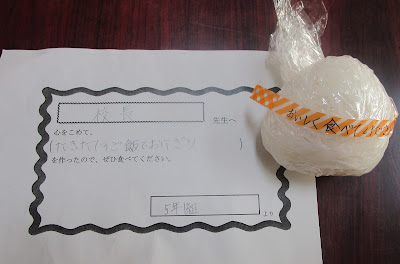 校長
先生へ
心をこめて、
(たきたてのご飯でおにぎり)
を作ったので、ぜひ食べてください。
5年1組
より
おいしく食べてください